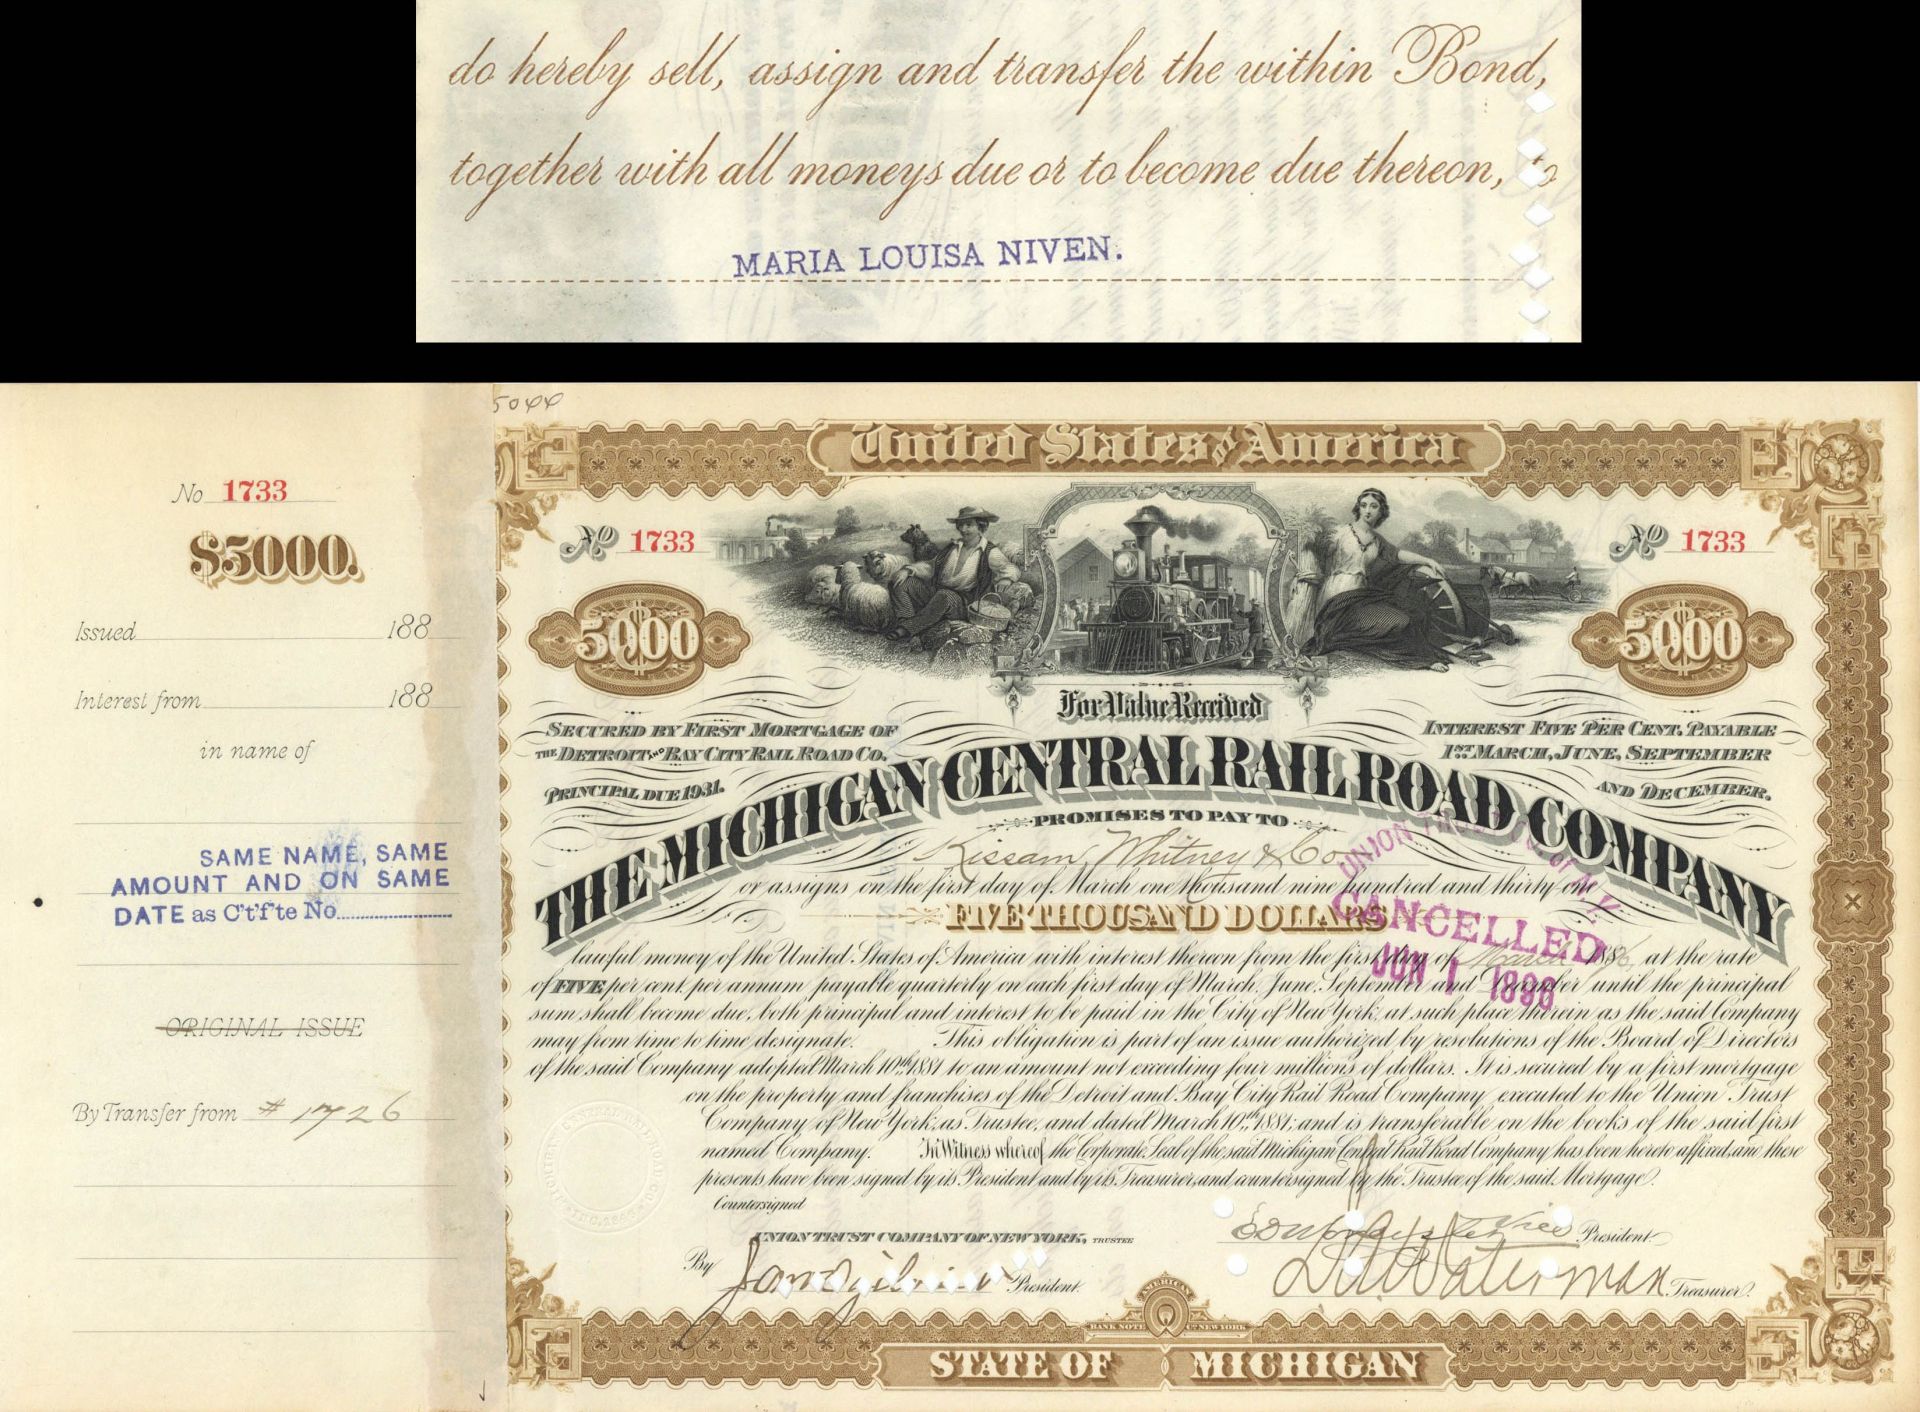 do hereby sell, assign and transfer the within Bond,
together with all moneys due or to become due thereon, to
MARIA LOUISA NIVEN.
5000
No 1733
$5000.
Issued 188
Interest from 188
in name of
SAME NAME, SAME
AMOUNT AND ON SAME
DATE as C't'f'te No.
ORIGINAL ISSUE
By Transfer from # 1726
United States of America
No 1733
No 1733
5000
5000
For Value Received
SECURED BY FIRST MORTGAGE OF
THE DETROIT AND BAY CITY RAIL ROAD CO.
PRINCIPAL DUE 1931.
INTEREST FIVE PER CENT. PAYABLE
1ST MARCH, JUNE, SEPTEMBER
AND DECEMBER.
THE MICHIGAN CENTRAL RAIL ROAD COMPANY
PROMISES TO PAY TO
Kissam, Whitney & Co.
or assigns on the first day of March one thousand nine hundred and thirty-one
FIVE THOUSAND DOLLARS
lawful money of the United States of America with interest thereon from the first day of March 1886, at the rate
of FIVE per cent. per annum payable quarterly on each first day of March, June, September and December until the principal
sum shall become due, both principal and interest to be paid in the City of New York, at such place therein as the said Company
may from time to time designate. This obligation is part of an issue authorized by resolutions of the Board of Directors
of the said Company adopted March 10th 1881 to an amount not exceeding four millions of dollars. It is secured by a first mortgage
on the property and franchises of the Detroit and Bay City Rail Road Company executed to the Union Trust
Company of New York, as Trustee, and dated March 10th 1881; and is transferable on the books of the said first
named Company. In Witness whereof the Corporate Seal of the said Michigan Central Rail Road Company has been hereto affixed, and these
presents have been signed by its President and by its Treasurer, and countersigned by the Trustee of the said Mortgage.
UNION TRUST CO. of N.Y.
CANCELLED
JUN 1 1896
Countersigned
UNION TRUST COMPANY OF NEW YORK, TRUSTEE
By President.
Vice President
Waterman Treasurer.
AMERICAN
BANK NOTE CO. NEW YORK
STATE OF MICHIGAN